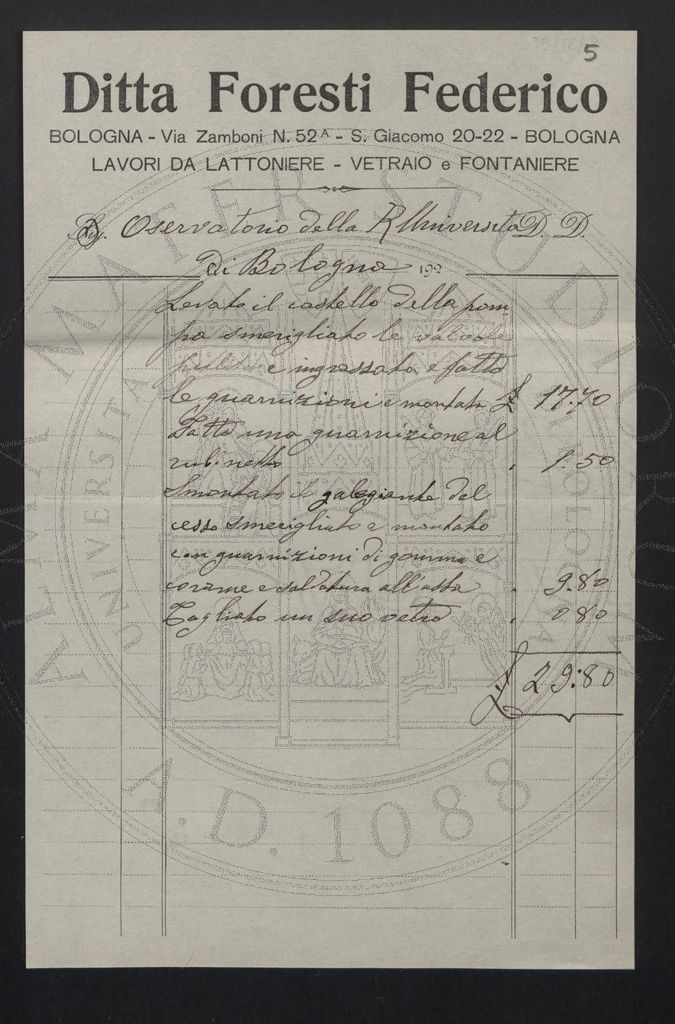 5
Ditta Foresti Federico
BOLOGNA - Via Zamboni N. 52A - S. Giacomo 20-22 - BOLOGNA
LAVORI DA LATTONIERE - VETRAIO e FONTANIERE
Oservatorio della R Università D. D.
di Bologna 192
Levato il castello della pom
pa smerigliato le valvole
pulite e ingrassata e fatto
le guarnizioni e montata £ 17.70
Fatto una guarnizione al
rubinetto " 1.50
Smontato il galegiante del
cesso smerigliato e montato
con guarnizioni di gomma e
corame e saldatura all'asta " 9.80
Tagliato un suo vetro " 0 80
£ 29:80
ALMA MATER STUDIORUM
UNIVERSITÀ DI BOLOGNA
A.D. 1088